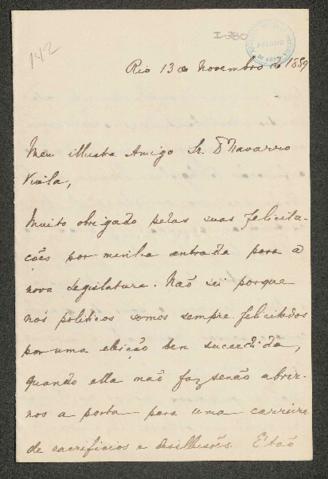 142
I-380
Rio 13 de Novembro de 1889
Meu illustre Amigo Sr. D Navarro
Viola,
Muito obrigado pelas suas felicita-
ções por minha entrada para a
nova legislatura. Não sei porque
nos politicos somos sempre felicitados
por uma eleição bem succedida,
quando ella não faz senão abrir-
nos a porta para uma carreira
de sacrificios e desillusões. Estão